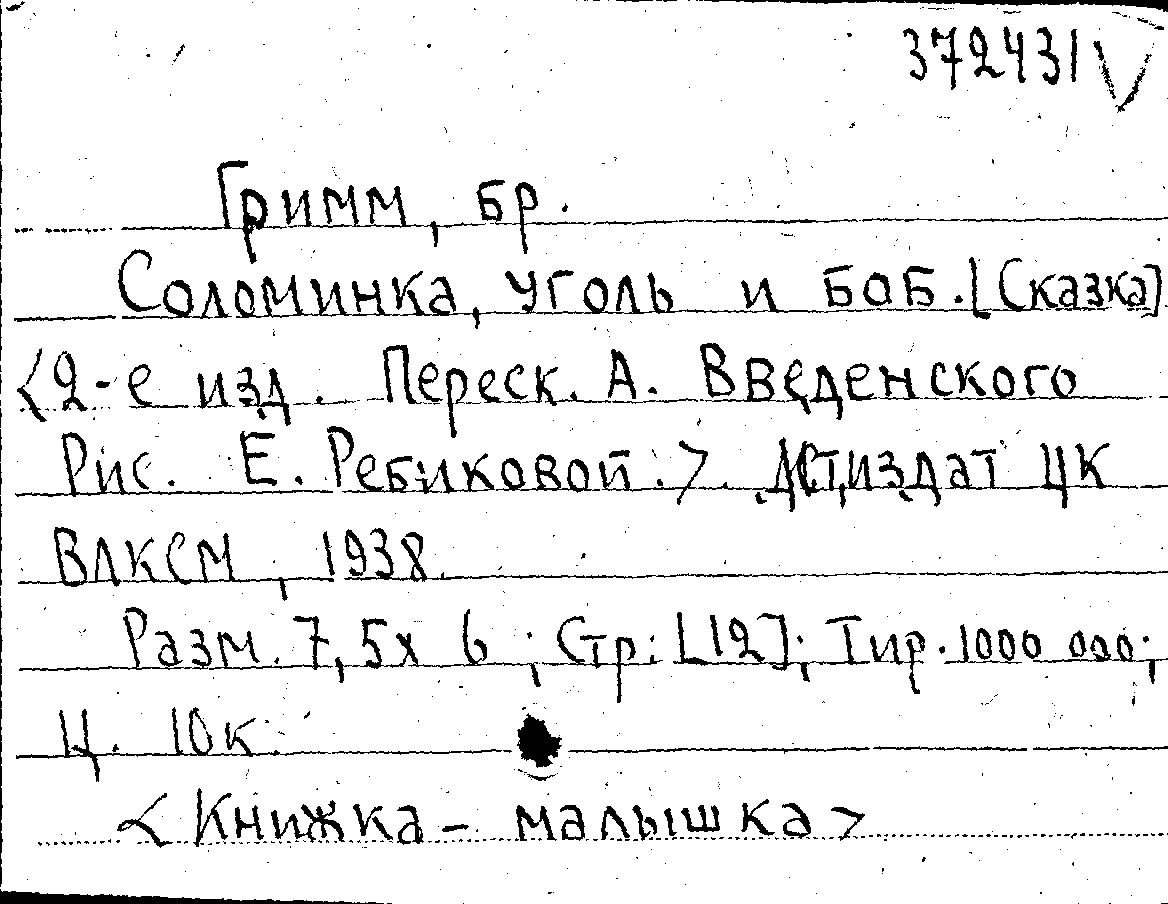 372431 V
Гримм, бр.
Соломинка, уголь и боб. [Сказка]
<2-е изд. Переск. А. Введенского
Рис. Е. Ребиковой.>. Детиздат ЦК
ВЛКСМ, 1938.
Разм. 7,5х 6 ; Стр: [12]; Тир. 1000 000;
Ц. 10к.
<Книжка - малышка>